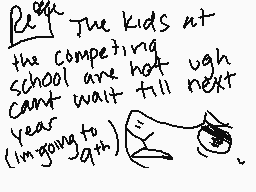 The kids at
the competing
school are hot ugh
cant wait till next
year
(im going to
9th)